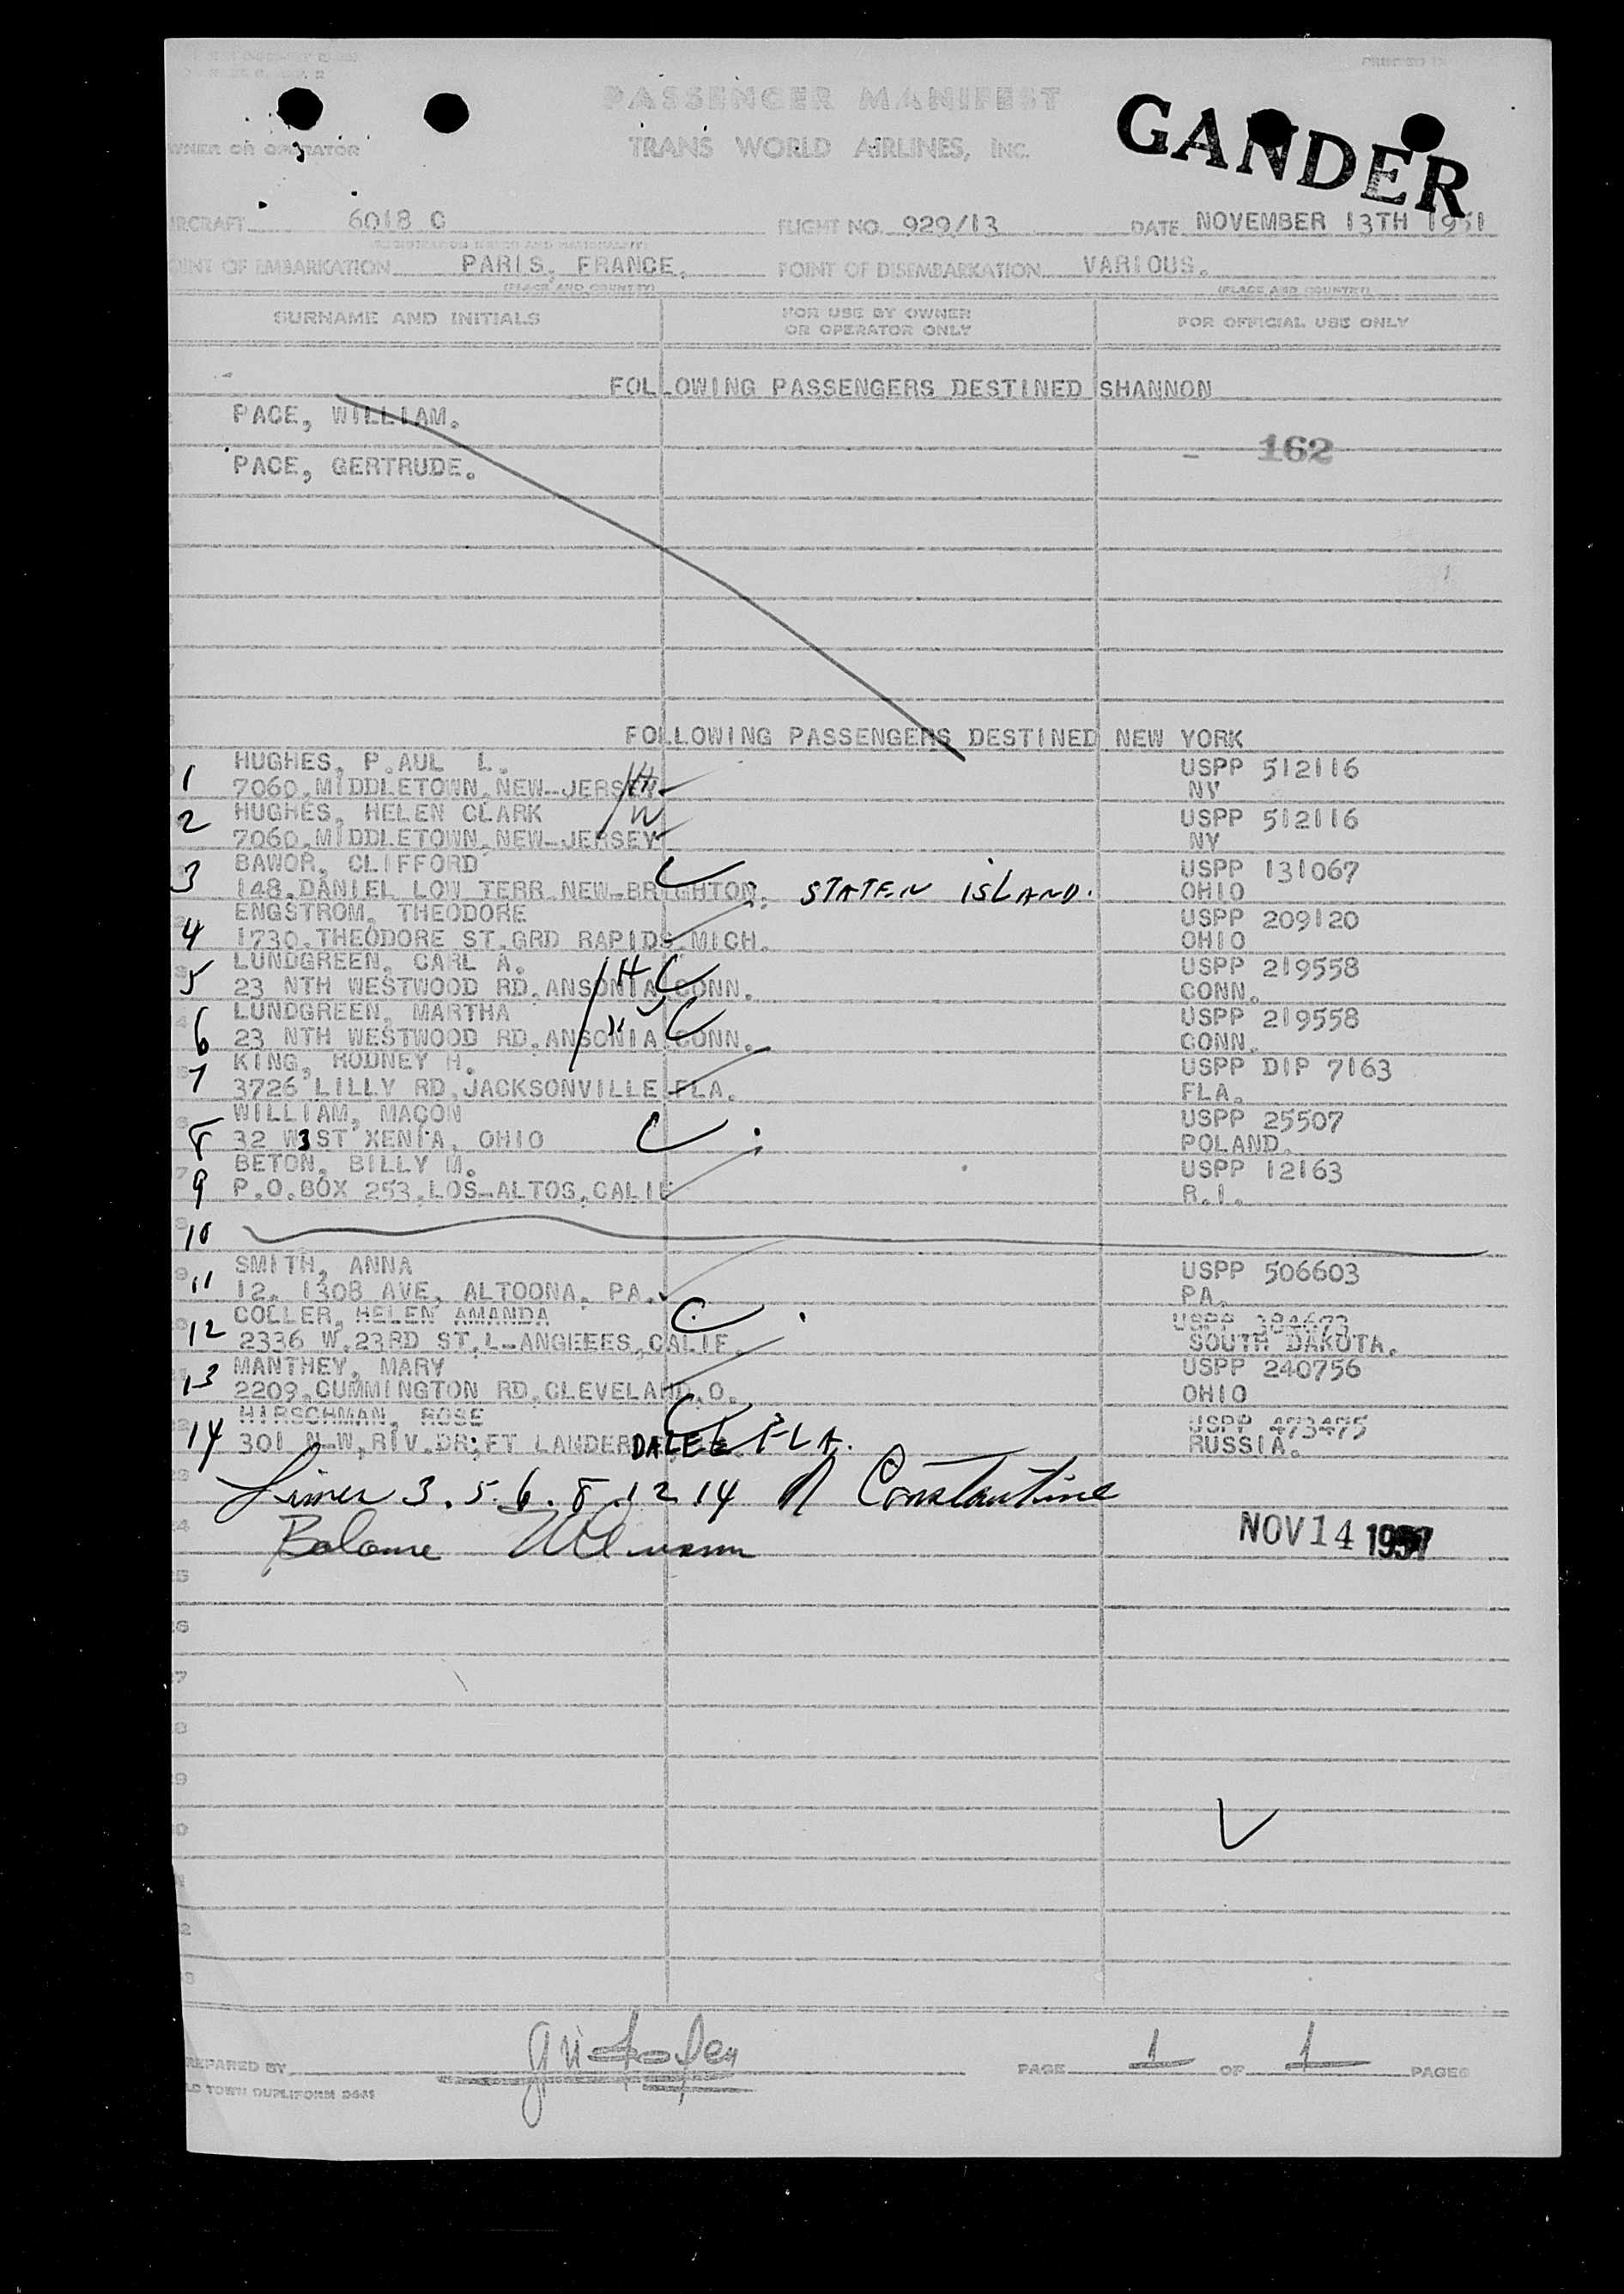 PASSENGER MANIFEST
GANDER
OWNER OR OPERATOR
TRANS WORLD AIRLINES, INC.
AIRCRAFT 6018 C FLIGHT NO. 929/13 DATE NOVEMBER 13TH 1951
(REGISTRATION MARKS AND NATIONALITY)
POINT OF EMBARKATION PARIS, FRANCE, POINT OF DISEMBARKATION VARIOUS.
(PLACE AND COUNTRY) (PLACE AND COUNTRY)
SURNAME AND INITIALS FOR USE BY OWNER OR OPERATOR ONLY FOR OFFICIAL USE ONLY
FOLLOWING PASSENGERS DESTINED SHANNON
PACE, WILLIAM.
162
PACE, GERTRUDE.
FOLLOWING PASSENGERS DESTINED NEW YORK
HUGHES, P.AUL L. USPP 512116
1 7060,MIDDLETOWN,NEW-JERSEY H NY
HUGHES, HELEN CLARK USPP 512116
2 7060,MIDDLETOWN,NEW-JERSEY W NY
BAWOR, CLIFFORD USPP 131067
3 148,DANIEL LOW TERR NEW-BRIGHTON, STATEN ISLAND. OHIO
ENGSTROM, THEODORE USPP 209120
4 1730,THEODORE ST,GRD RAPIDS,MICH. OHIO
LUNDGREEN, CARL A. USPP 219558
5 23 NTH WESTWOOD RD,ANSONIA CONN. H C CONN.
LUNDGREEN, MARTHA USPP 219558
6 23 NTH WESTWOOD RD,ANSONIA CONN. W C CONN.
KING, RODNEY H. USPP DIP 7163
7 3726 LILLY RD,JACKSONVILLE FLA. FLA.
WILLIAM, MACON USPP 25507
8 32 W3ST XENIA, OHIO C POLAND.
BETON, BILLY M. USPP 12163
9 P.O.BOX 253,LOS-ALTOS,CALIF R.I.
10
SMITH, ANNA USPP 506603
11 12, 1308 AVE, ALTOONA, PA. PA.
COLLER, HELEN AMANDA C USPP 384673
12 2336 W.23RD ST,L-ANGEEES,CALIF. SOUTH DAKOTA.
MANTHEY, MARY USPP 240756
13 2209,CUMMINGTON RD,CLEVELAND,O. OHIO
HIRSCHMAN, ROSE C USPP 473475
14 301 N-W,RIV.DR;FT LANDERDALEE FLA. RUSSIA.
Lines 3.5.6.8.12 14 Constantine
Balance
NOV 14 1951
PREPARED BY PAGE 1 OF 1 PAGES
OLD TOWN DUPLIFORM